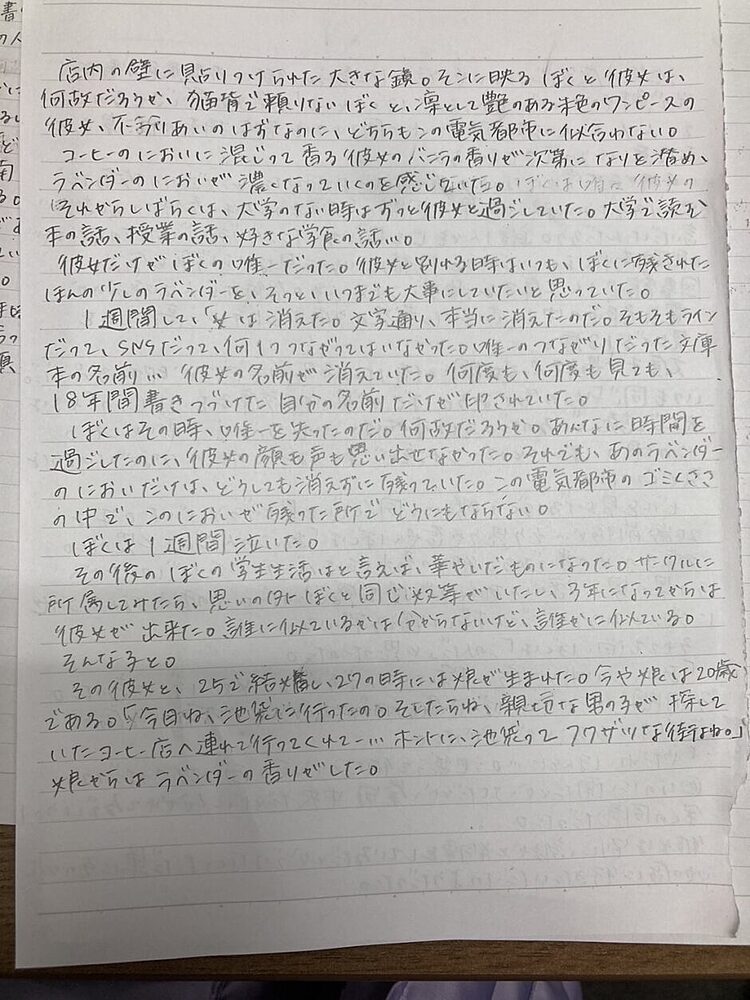 店内の壁に貼りつけられた大きな鏡。そこに映るぼくと彼女は、
何故だろうか、猫背で頼りないぼくと、凛として艶のある朱色のワンピースの
彼女、不釣りあいのはずなのに、どちらもこの電気都市に似合わない。
コーヒーのにおいに混じって香る彼女のバニラの香りが次第になりを潜め、
ラベンダーのにおいが濃くなっていくのを感じていた。
それからしばらくは、大学のない時はずっと彼女と過ごしていた。大学で読む
本の話、授業の話、好きな学食の話…。
彼女だけがぼくの唯一だった。彼女と別れる時はいつも、ぼくに残された
ほんの少しのラベンダーを、そっと、いつまでも大事にしていたいと思っていた。
1週間して、彼女は消えた。文字通り、本当に消えたのだ。そもそもライン
だって、SNSだって、何1つつながってはいなかった。唯一のつながりだった文庫
本の名前… 彼女の名前が消えていた。何度も、何度も見ても、
18年間書きつづけた自分の名前だけが印されていた。
ぼくはその時、唯一を失ったのだ。何故だろうか。あんなに時間を
過ごしたのに、彼女の顔も声も思い出せなかった。それでも、あのラベンダー
のにおいだけは、どうしても消えずに残っていた。この電気都市のゴミくささ
の中で、このにおいが残った所でどうにもならない。
ぼくは1週間泣いた。
その後のぼくの学生生活はと言えば、華やいだものになった。サークルに
所属してみたら、思いの外ぼくと同じ奴等がいたし、3年になってからは
彼女が出来た。誰に似ているかは分からないけど、誰かに似ている。
そんな子と。
その彼女と、25で結婚し、27の時には娘が生まれた。今や娘は20歳
である。「今日ね、池袋に行ったの。そしたらね、親切な男の子が探して
いたコーヒー店へ連れて行ってくれて… ホントに、池袋ってフクザツな街よね。」
娘からはラベンダーの香りがした。